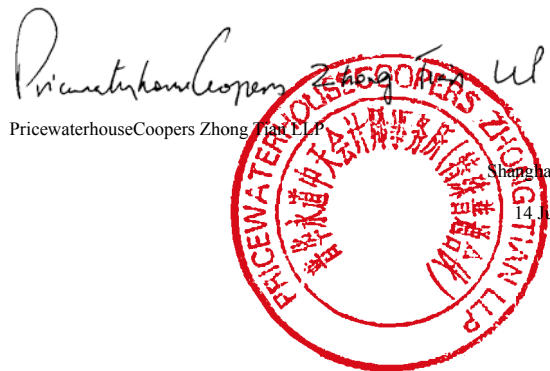 PricewaterhouseCoopers Zhong Tian LLP
PricewaterhouseCoopers Zhong Tian LLP
PRICEWATERHOUSECOOPERS ZHONG TIAN LLP
普华永道中天会计师事务所(特殊普通合伙)
Shangha
14 Ju